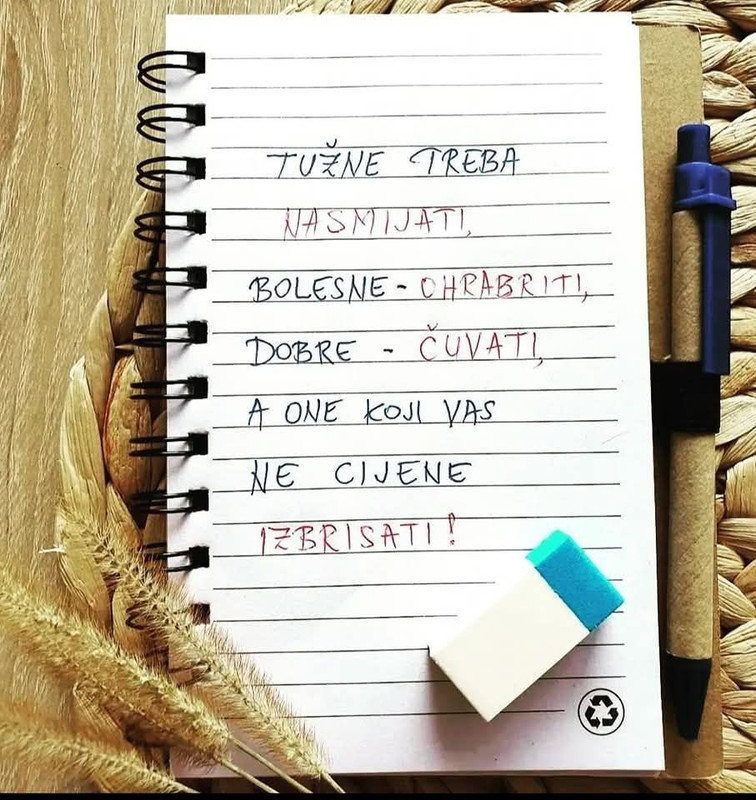 TUŽNE TREBA
NASMIJATI,
BOLESNE - OHRABRITI,
DOBRE - ČUVATI,
A ONE KOJI VAS
NE CIJENE
IZBRISATI!